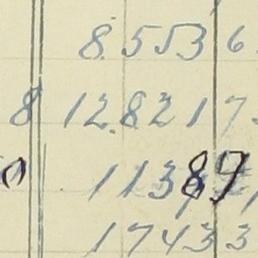 8 5 5 3 6
8 12 8 2 1 7
1 1 3 8 9
1 7 4 3 3